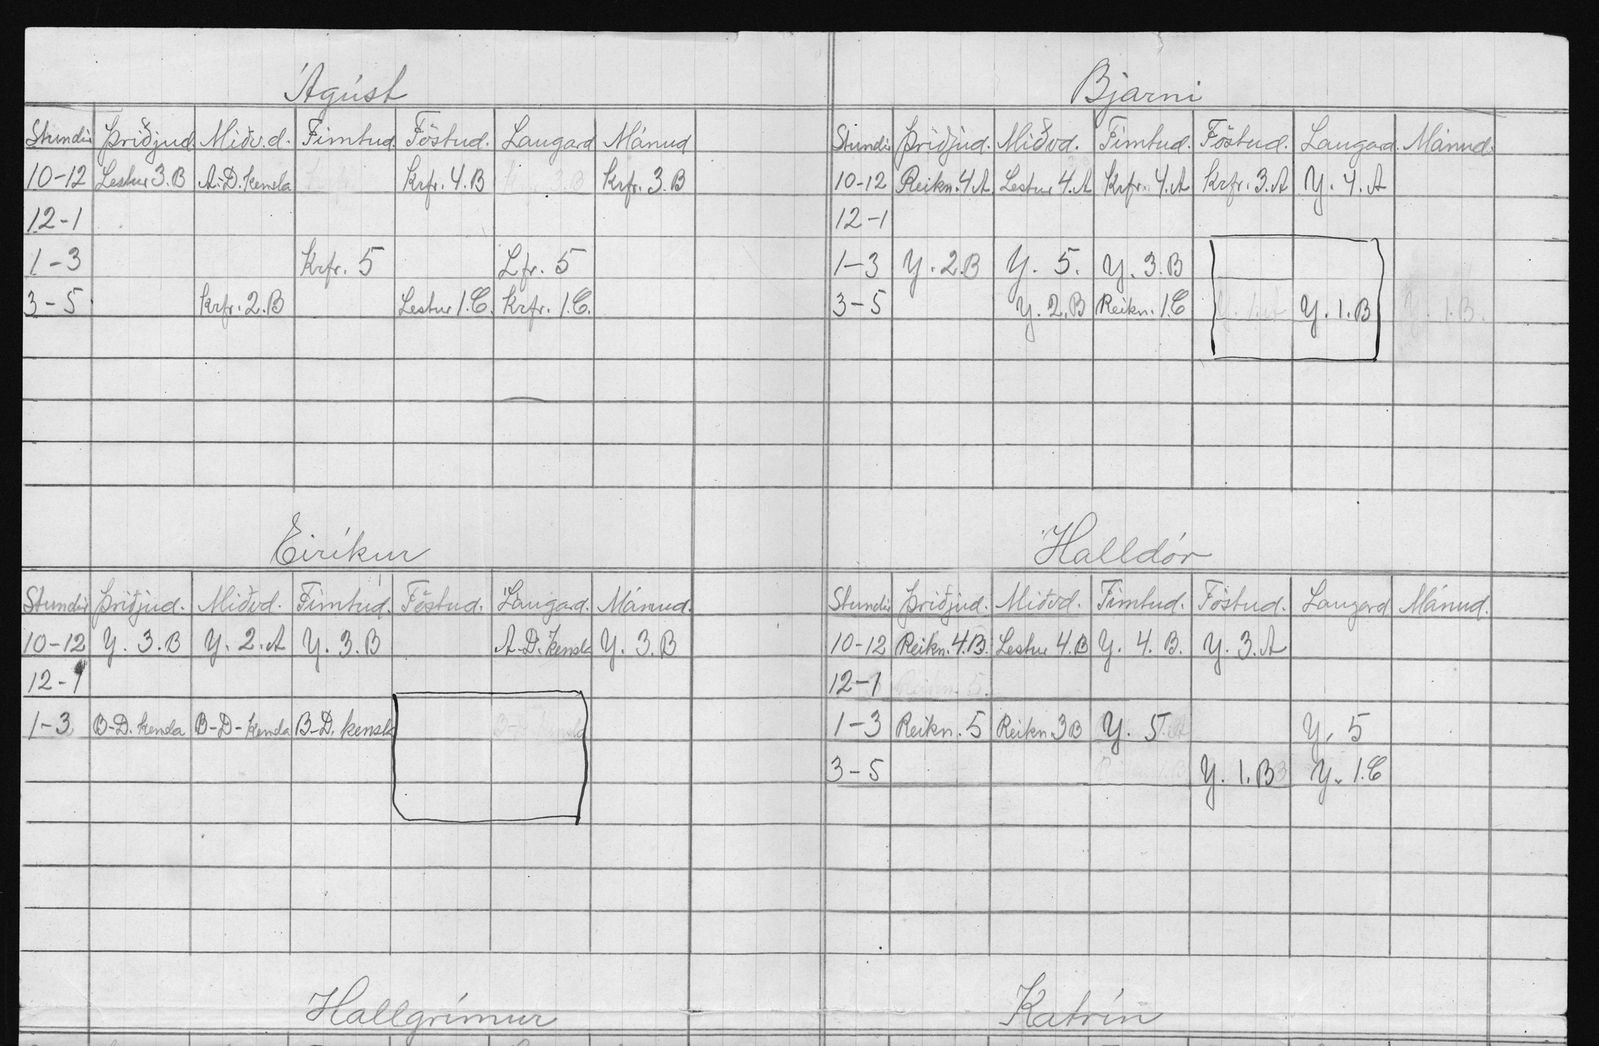 Ágúst
Stundir Þriðjud. Miðv.d. Fimtud. Föstud. Laugard. Mánud
10-12 Lestur 3.B A.-D. kensla krfr. 4.B krfr. 3.B
12-1
1-3 krfr. 5 Lfr. 5
3-5 krfr. 2.B Lestur 1.C. krfr. 1.C.
Bjarni
Stundir Þriðjud. Miðvd. Fimtud. Föstud. Laugard. Mánud.
10-12 Reikn. 4.A Lestur 4.A krfr. 4.A krfr. 3.A Y. 4.A
12-1
1-3 Y. 2.B Y. 5. Y. 3.B
3-5 Y. 2.B Reikn. 1.C Y. 1.B Y. 1.B.
Eiríkur
Stundir Þriðjud. Miðvd. Fimtud. Föstud. Laugard. Mánud.
10-12 Y. 3.B Y. 2.A Y. 3.B A.-D. kensla Y. 3.B
12-1
1-3 B-D. kensla B-D- kensla B-D. kensla
Halldór
Stundir Þriðjud. Miðvd. Fimtud. Föstud. Laugard Mánud.
10-12 Reikn. 4.B. Lestur 4.B Y. 4.B. Y. 3.A
12-1 Reikn. 5.
1-3 Reikn. 5 Reikn 3B Y. 5 Y. 5
3-5 Y. 1.B Y. 1.C
Hallgrímur
Katrín